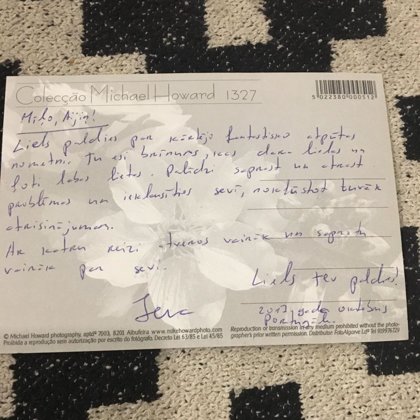 Colecção Michael Howard 1327
5 022380 000512
Mīļo, Aijiņ!
Liels paldies par kārtējo fantastisko atpūtas
nometni. Tu esi brīnums, kas dara lielas un
ļoti labas lietas. Palīdzi saprast un atrast
problēmas un ieklausīties sevī, nokļūstot tuvāk
atrisinājumam.
Ar katru reizi atveros vairāk un saprotu
vairāk par sevi.
Liels tev paldies!
Ieva
2013. gada oktobris
Portugāle
© Michael Howard photography, 8200 Albufeira www.mikehowardphoto.com
Proibida a reprodução sem autorização por escrito do fotógrafo. Decreto Lei 63/85 e Lei 45/85
Reproduction or transmission in any medium prohibited without the photo-
grapher's prior written permission. Distribuidor: FotoAlgarve Ldª Tel 919976729